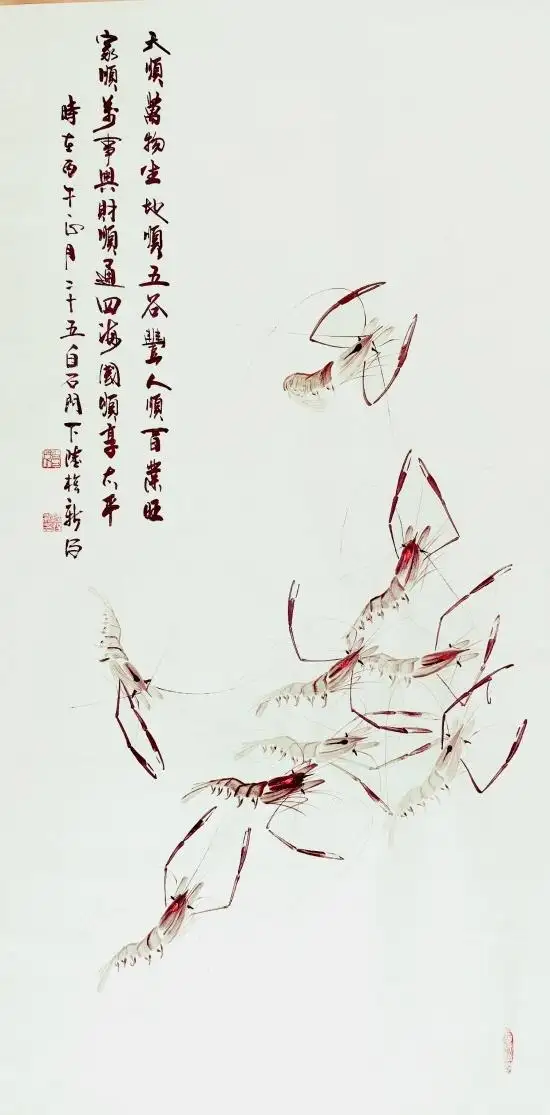 天順萬物生地順五谷豐人順百業旺
家順萬事興財順通四海國順享太平
時在丙午正月二十五白石門下陸